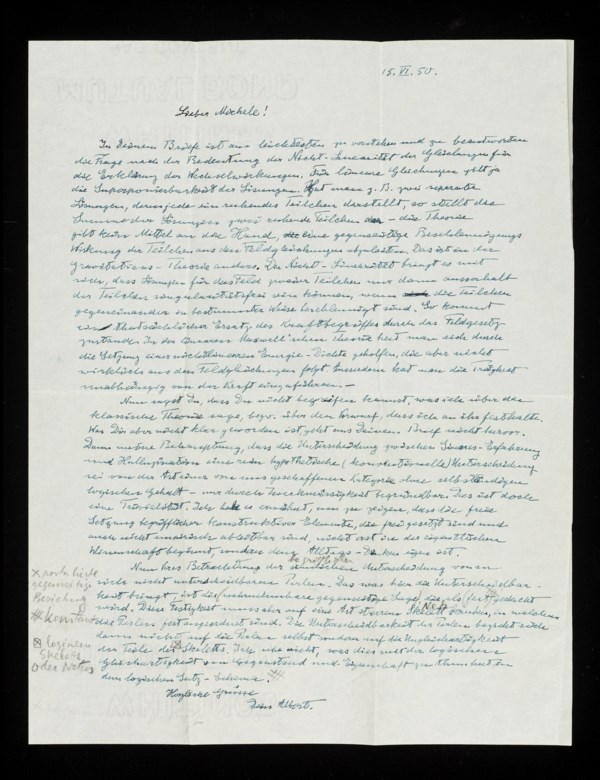 15. VI. 50.
Lieber Michele!
In Deinem Brief ist am leichtesten zu verstehen und zu beantworten
die Frage nach der Bedeutung der Nicht-Linearität der Gleichungen für
die Erklärung der Wechselwirkungen. Für lineare Gleichungen gibt es ja
die Superponierbarkeit der Lösungen. Hat man z. B. zwei separate
Lösungen, deren jede ein ruhendes Teilchen darstellt, so stellt die
Summe der Lösungen zwei ruhende Teilchen dar – die Theorie
gibt kein Mittel an die Hand, eine gegenseitige Beschleunigungs
Wirkung der Teilchen aus den Feldgleichungen abzuleiten. Das ist in der
Gravitations-Theorie anders. Die Nicht-Linearität bringt es mit
sich, dass Lösungen für das Feld zweier Teilchen nur dann ausserhalb
der Teilchen singularitätsfrei sein können, wenn die Teilchen
gegeneinander in bestimmter Weise beschleunigt sind. So kommt
ein thatsächlicher Ersatz des Kraftbegriffes durch das Feldgesetz
zustande. In der Maxwell'schen Theorie hat man sich durch
die Setzung einer nichtlinearen Energie-Dichte geholfen, die aber nicht
wirklich aus den Feldgleichungen folgt. Ausserdem hat man die Trägheit
unabhängig von der Kraft einzuführen. –
Nun sagst Du, dass Du nicht begreifen kannst, was ich über die
klassische Theorie sage, bezw. über den Vorwurf, dass ich an ihr festhalte.
Was Dir aber nicht klar geworden ist, geht aus Deinem Brief nicht hervor.
Dann meine Behauptung, dass die Unterscheidung zwischen Sinnes-Erfahrung
und Halluzination eine rein hypothetische (konventionelle) Unterscheidung
sei von der Art einer von uns geschaffenen Kategorie ohne selbständigen
logischen Gehalt – nur durch Zweckmässigkeit begründbar. Dies ist doch
eine Trivialität. Ich habe es erwähnt, um zu zeigen, dass die freie
Setzung begrifflicher konstruktiver Elemente, die frei gesetzt sind und
auch nicht empirisch ableitbar sind, nicht erst in der eigentlichen
Wissenschaft beginnt, sondern dem Alltags-Denken eigen ist.
Nun Betrachtung der begrifflichen Unterscheidung von an
sich nicht unterscheidbaren Perlen. Das was hier die Unterscheidbar-
keit bringt, ist die gegenseitige Lage, die als fest gedacht
wird. Diese Festigkeit muss aber auf eine Art starren Skelett Netz in welchem
die Perlen fest angeordnet sind. Die Unterscheidbarkeit der Perlen bezieht sich
dann nicht auf die Perlen selbst sondern auf die Ungleichartigkeit
der Teile des Skeletts. Ich sehe nicht, was dies mit der logischen
Gleichwertigkeit von Gegenstand und Eigenschaft zu thun hat in
dem logischen Satz-Schema.
Herzliche Grüsse
Dein Albert.
gegenseitige
Beziehung
# konstant
Skeletts
oder Netzes